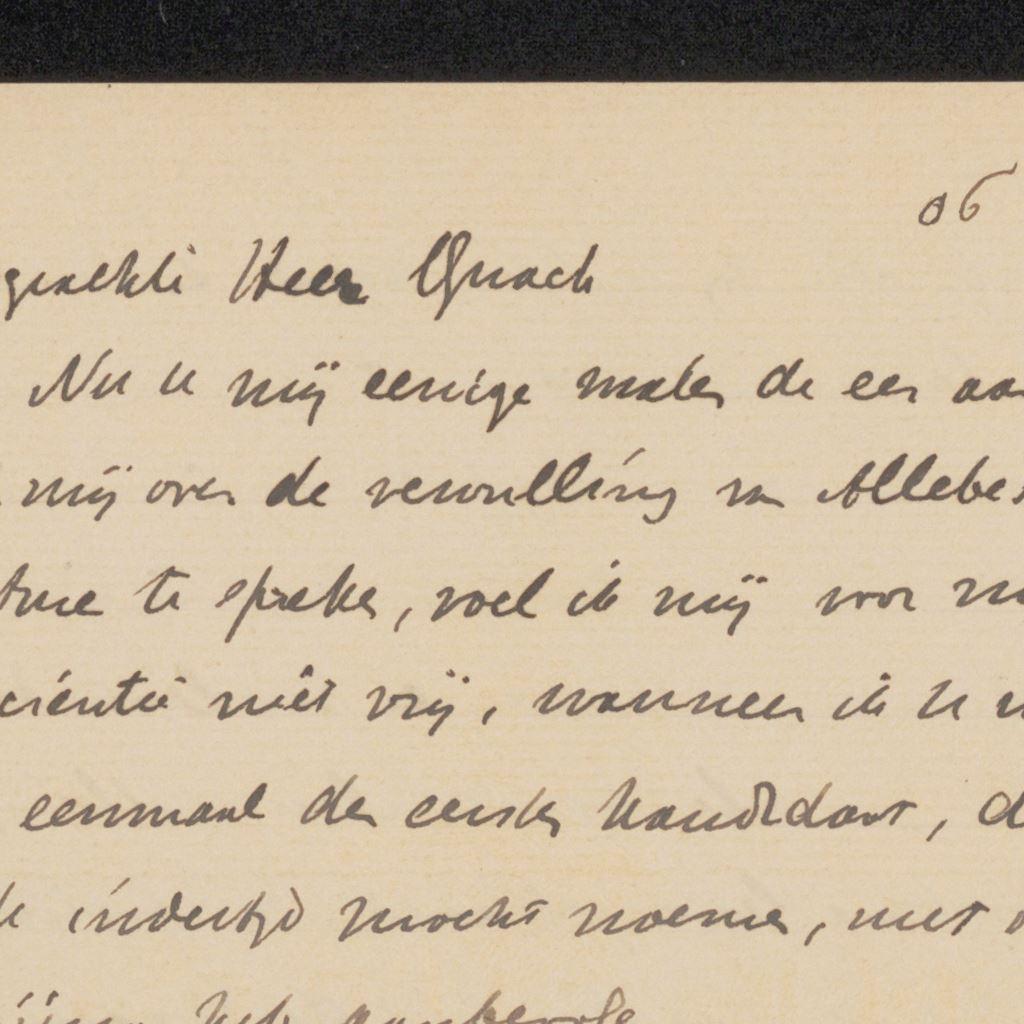 06
geachte Heer Quack
Nu u mij eenige malen de eer aan
mij over de vervulling van Allebé
te spreken, voel ik mij voor
ciëntie niet vrij, wanneer ik u
eenmaal den eersten kandidaat, d
indertijd mocht noemen, met
heb aanbevole